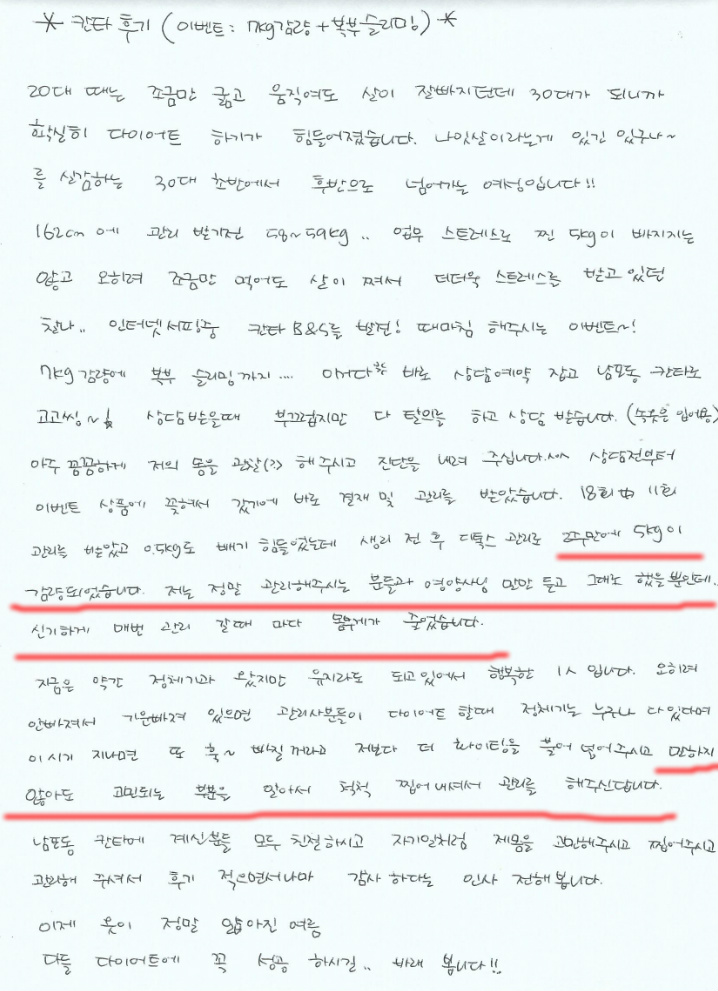 * 칸타 후기 (이벤트: 7kg감량+복부슬리밍) *
20대 때는 조금만 굶고 움직여도 살이 잘빠지던데 30대가 되니까
확실히 다이어트 하기가 힘들어졌습니다. 나잇살이라는게 있긴 있구나~
를 실감하는 30대 초반에서 후반으로 넘어가는 여성입니다!!
162cm에 관리 받기전 58~59kg.. 업무 스트레스로 찐 5kg이 빠지지는
않고 오히려 조금만 먹어도 살이 쪄서 더더욱 스트레스를 받고 있던
찰나.. 인터넷서핑중 칸타 B&S를 발견! 때마침 해주시는 이벤트~!
7kg감량에 복부 슬리밍까지.... 이거다 바로 상담예약 잡고 남포동 칸타로
고고씽~ 상담받을때 부끄럽지만 다 탈의를 하고 상담 받습니다. (속옷은 입어용)
아주 꼼꼼하게 저의 몸을 관찰(?) 해주시고 진단을 내려 주십니다.^^ 상담전부터
이벤트 상품에 꽂혀서 갔기에 바로 결재 및 관리를 받았습니다. 18회 中 11회
관리를 받았고 0.5kg도 빼기 힘들었는데 생리 전 후 디톡스 관리로 2주만에 5kg이
감량되었습니다. 저는 정말 관리해주시는 분들과 영양사님 말만 듣고 그대로 했을 뿐인데..
신기하게 매번 관리 갈때 마다 몸무게가 줄었습니다.
지금은 약간 정체기가 왔지만 유지라도 되고있어서 행복한 1人 입니다. 오히려
안빠져서 기운빠져 있으면 관리사분들이 다이어트 할때 정체기는 누구나 다 있다며
이시기 지나면 또 훅~ 빠질꺼라고 저보다 더 화이팅을 불어 넣어주시고 말하지
않아도 고민되는 부분을 알아서 척척 찝어내셔서 관리를 해주신답니다.
남포동 칸타에 계신분들 모두 친절하시고 자기일처럼 제몸을 고민해주시고 찝어주시고
관리해 주셔서 후기 적으면서나마 감사 하다는 인사 전해봅니다.
이제 옷이 정말 얇아진 여름
다들 다이어트에 꼭 성공 하시길.. 바래 봅니다!!